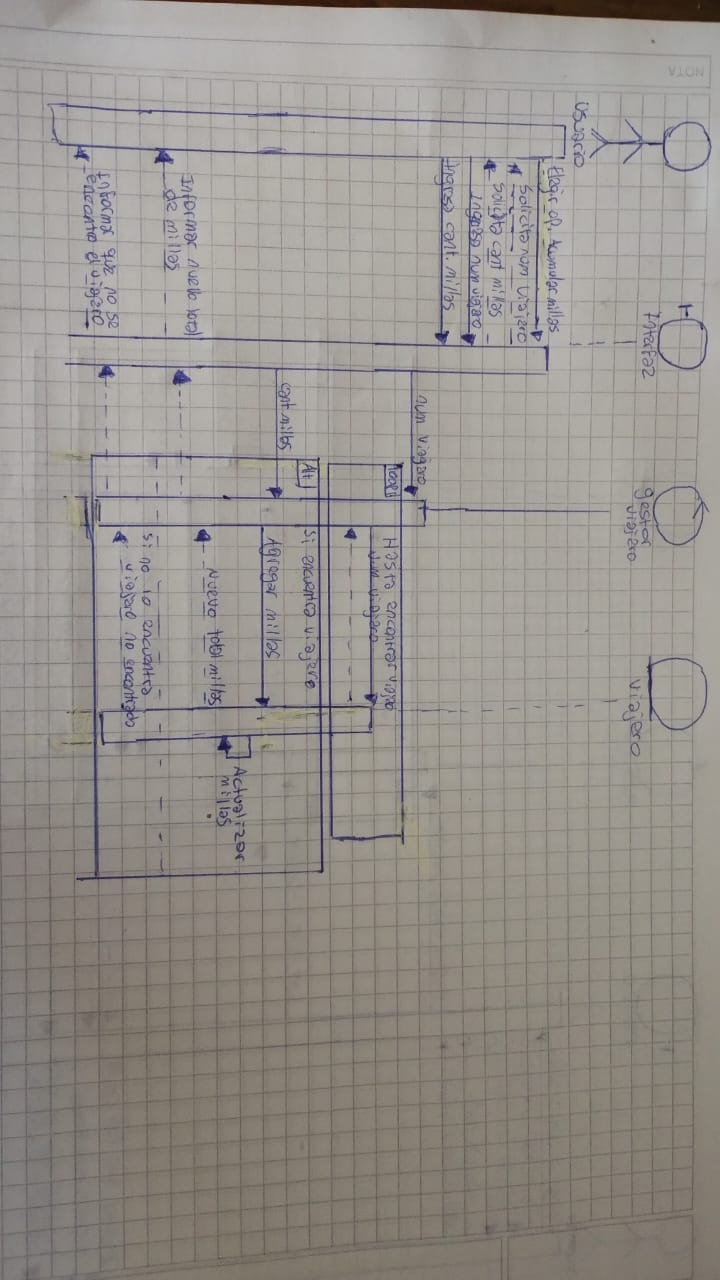 NOTA
Usuario
Interfaz
gestor
viajero
viajero
Elegir op. acumular millas
Solicita num viajero
Solicita cant millas
Ingresa num viajero
Ingresa cant. millas
num viajero
loop
Hasta encontrar viajero
num viajero
cant millas
Alt
Si encuentra viajero
Agregar millas
Actualizar
millas
Nuevo total millas
Informar nuevo total
de millas
Si no lo encuentra
viajero no encontrado
Informa que no se
encontro el viajero